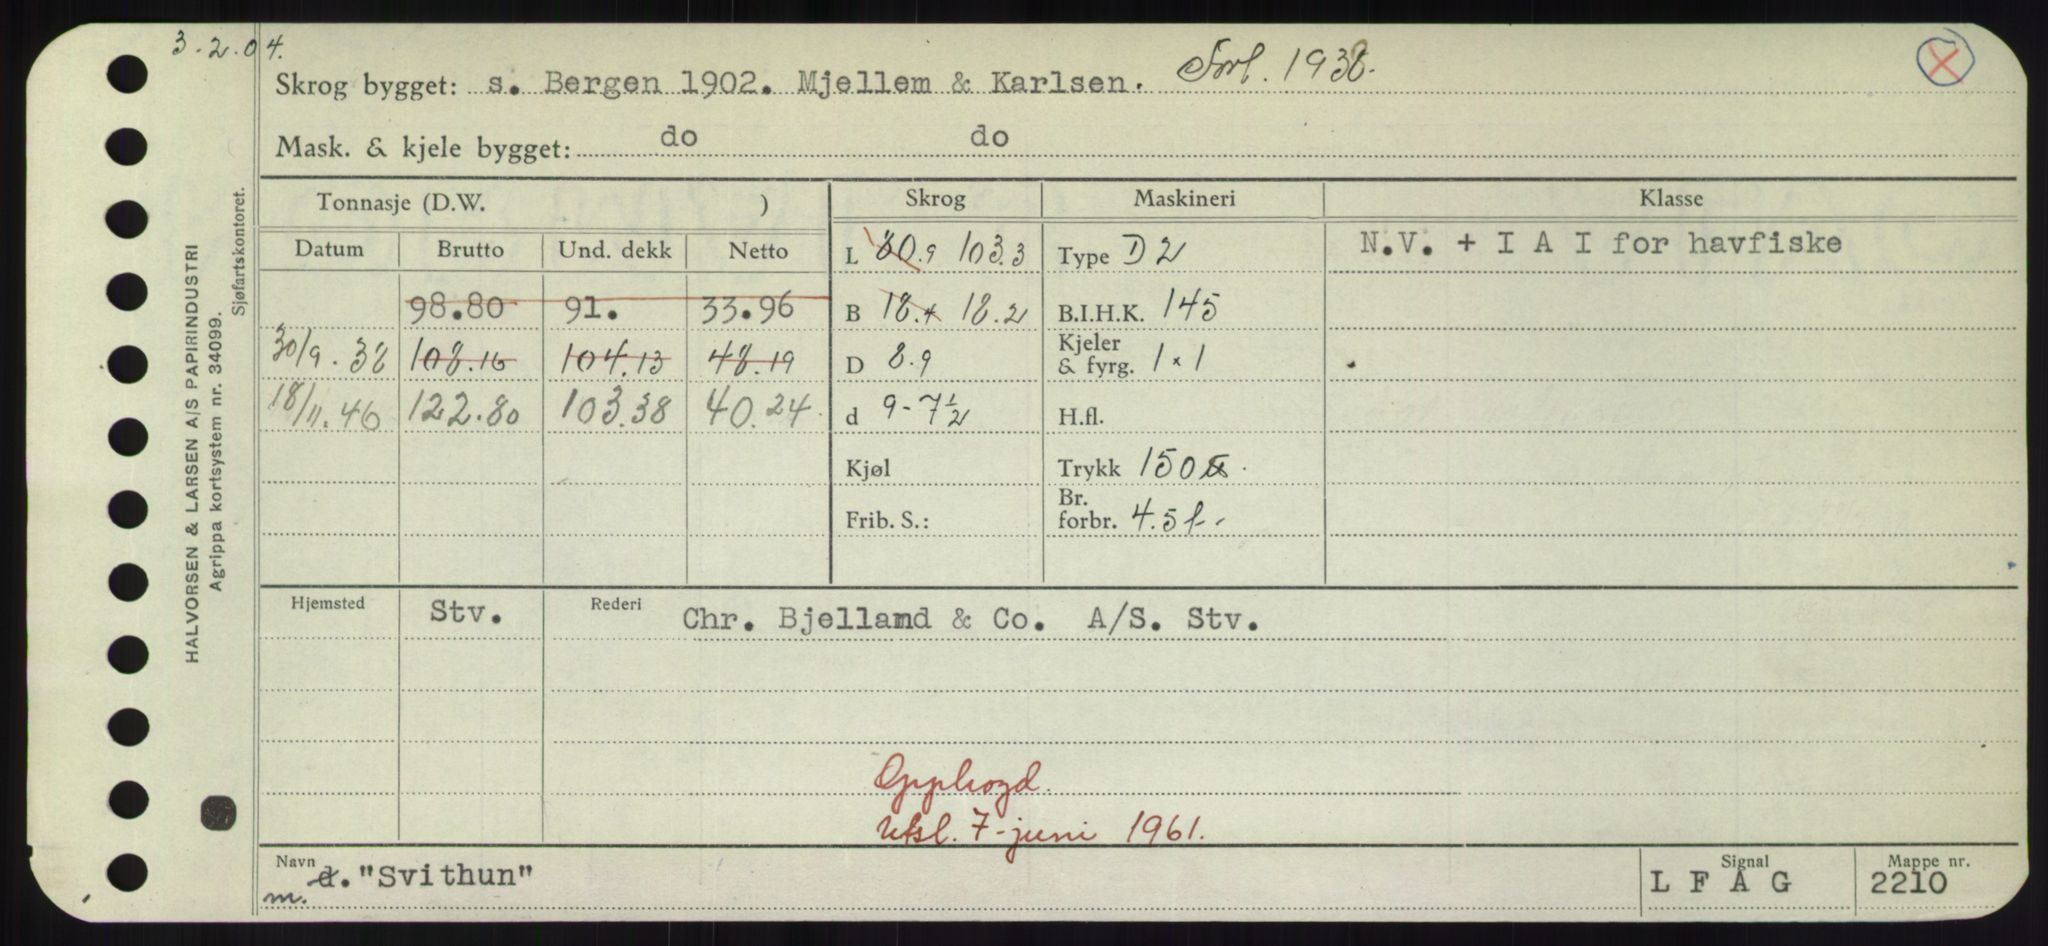 3.2.04.
Skrog bygget: s. Bergen 1902. Mjellem & Karlsen. Forl. 1938.
Mask. & kjele bygget: do do
Tonnasje (D.W. ) Skrog Maskineri Klasse
Datum Brutto Und. dekk Netto L 80.9 103.3 Type D 2 N.V. + I A I for havfiske
98.80 91. 33.96 B 18.4 18.2 B.I.H.K. 145
30/9.38 108.16 104.13 48.19 D 8.9 Kjeler & fyrg. 1 x 1
18/11.46 122.80 103.38 40.24 d 9-7½ H.fl.
Kjøl Trykk 150
Frib. S.: Br. forbr. 4.5 t.
Hjemsted Stv. Rederi Chr. Bjelland & Co. A/S. Stv.
Opphogd.
Utsl. 7-juni 1961.
Navn d. "Svithun" Signal L F A G Mappe nr. 2210
m.
HALVORSEN & LARSEN A/S PAPIRINDUSTRI
Agrippa kortsystem nr. 34099.
Sjøfartskontoret.